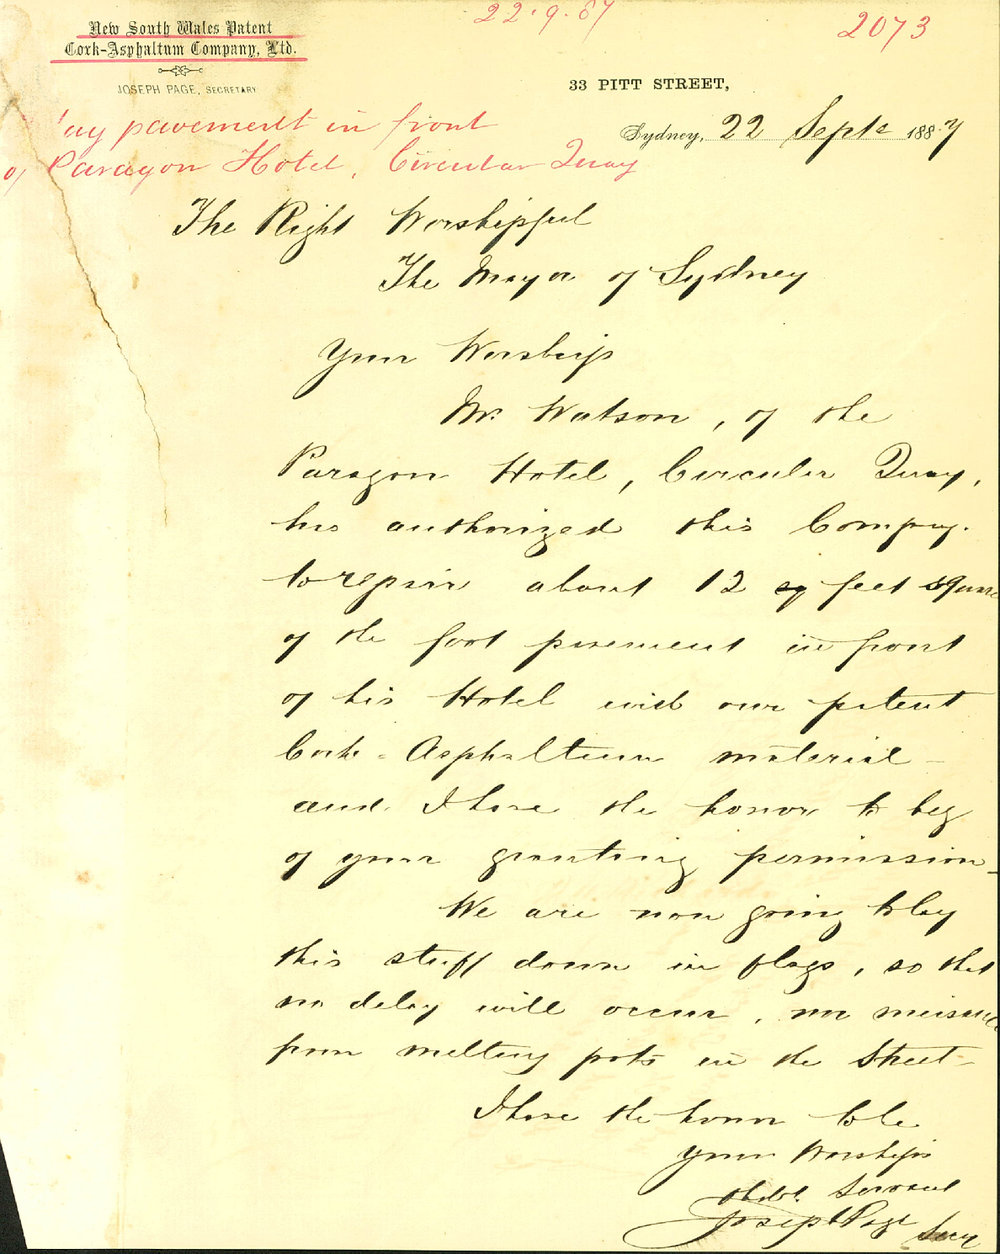 22.9.87
2073
New South Wales Patent
Cork-Asphaltum Company, Ltd.
JOSEPH PAGE, SECRETARY
33 PITT STREET,
Sydney, 22 Septr 1887
lay pavement in front
of Paragon Hotel, Circular Quay
The Right Worshipful
The Mayor of Sydney
Your Worship
Mr. Watson, of the
Paragon Hotel, Circular Quay,
has authorized this Compy.
to repair about 12 feet square
of the foot pavement in front
of his Hotel with our patent
Cork-Asphaltum material -
and I have the honor to beg
of your granting permission -
We are now going to lay
this stuff down in flags, so that
no delay will occur, nor nuisance
from melting pots in the Street -
I have the honor to be
Your Worship's
obdt. Servant
Joseph Page Secy